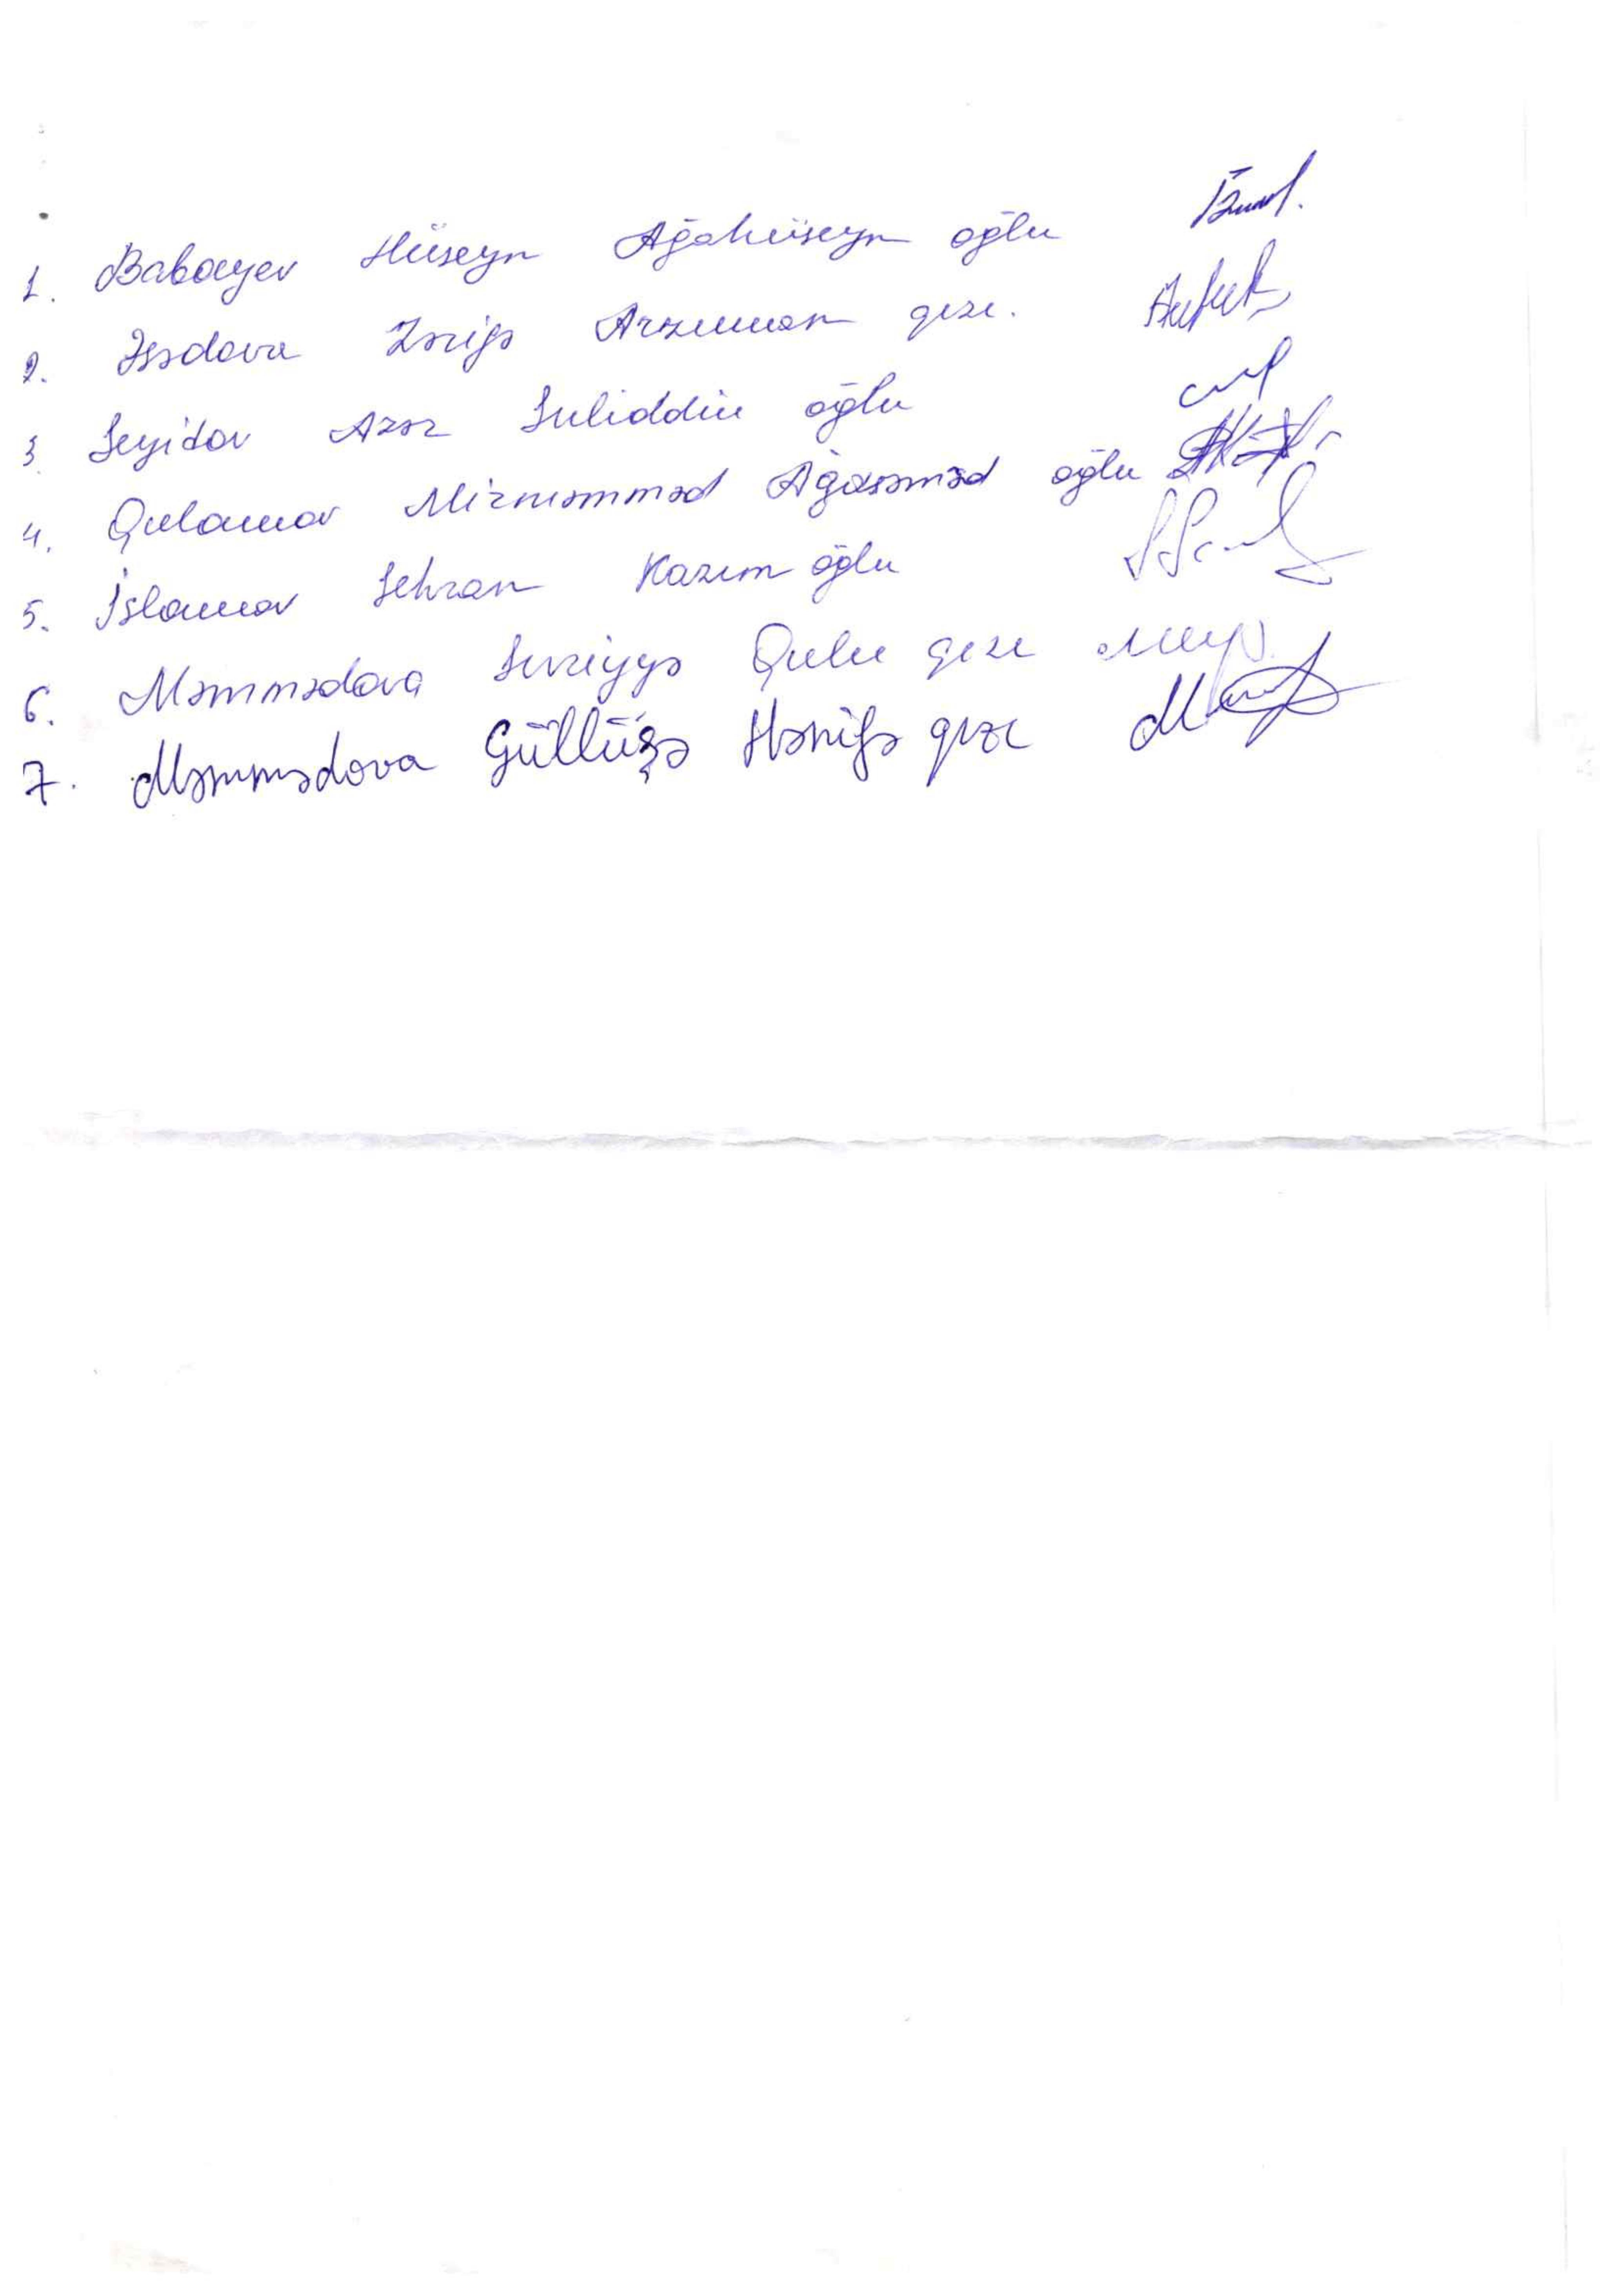 1. Babayev Hüseyn Ağahüseyn oğlu
2. Əsədova Zərifə Arzuman qızı.
3. Seyidov Azər Suliddin oğlu
4. Qulamov Mirməmməd Ağasəməd oğlu
5. İslamov Sehran Kazım oğlu
6. Məmmədova Surəyyə Qulu qızı
7. Məmmədova Güllüzə Hənifə qızı